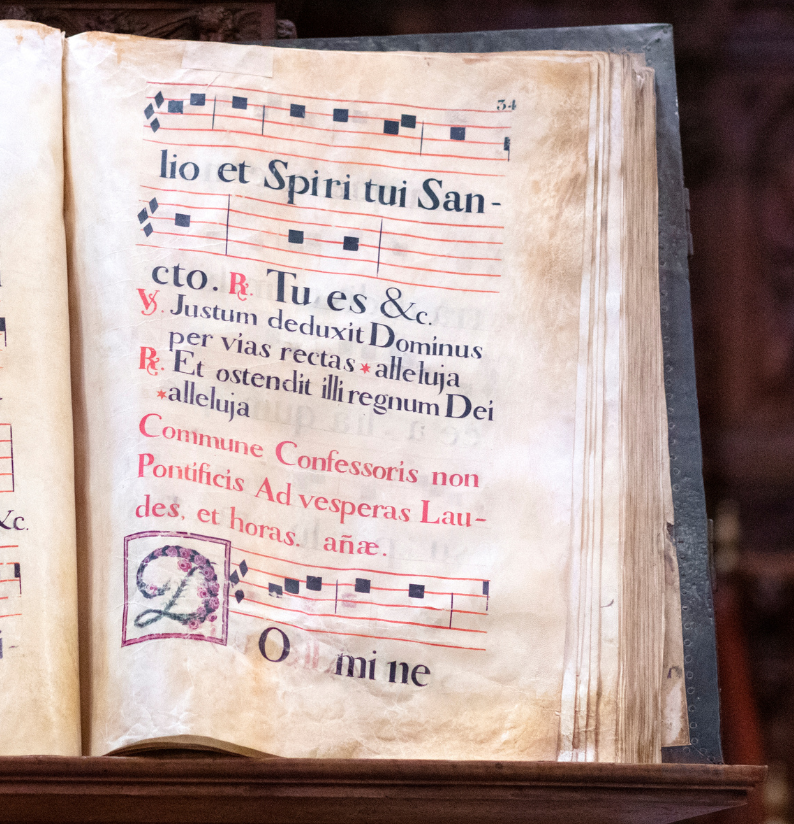 34
lio et Spiri tui San-
cto. ℟. Tu es &c.
℣. Justum deduxit Dominus
per vias rectas * alleluja
℟. Et ostendit illi regnum Dei
*alleluja
Commune Confessoris non
Pontificis Ad vesperas Lau-
des, et horas. añæ.
D
O mi ne
&c.